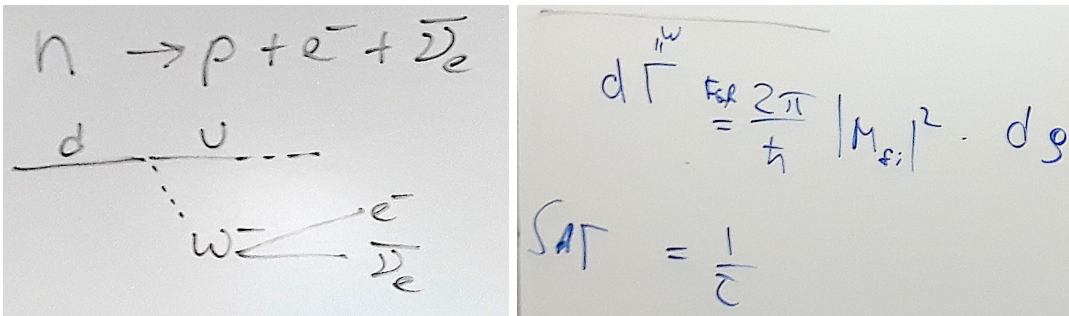 n → p + e⁻ + ν̄ₑ
d u
W⁻ e⁻
ν̄ₑ
dΓ "W" = 2π/ħ |M_fi|² · dρ
∫dΓ = 1/τ